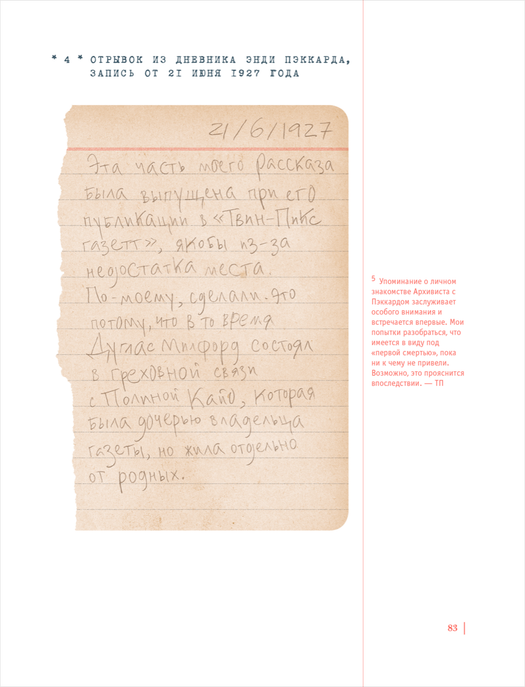 * 4 * ОТРЫВОК ИЗ ДНЕВНИКА ЭНДИ ПЭККАРДА,
ЗАПИСЬ ОТ 21 ИЮНЯ 1927 ГОДА
21/6/1927
Эта часть моего рассказа
была выпущена при его
публикации в «Твин-Пикс
газетт», якобы из-за
недостатка места.
По-моему, сделали это
потому, что в то время
Дуглас Милфорд состоял
в греховной связи
с Полиной Кайо, которая
была дочерью владельца
газеты, но жила отдельно
от родных.
5 Упоминание о личном
знакомстве Архивиста с
Пэккардом заслуживает
особого внимания и
встречается впервые. Мои
попытки разобраться, что
имеется в виду под
«первой смертью», пока
ни к чему не привели.
Возможно, это прояснится
впоследствии. — ТП
83